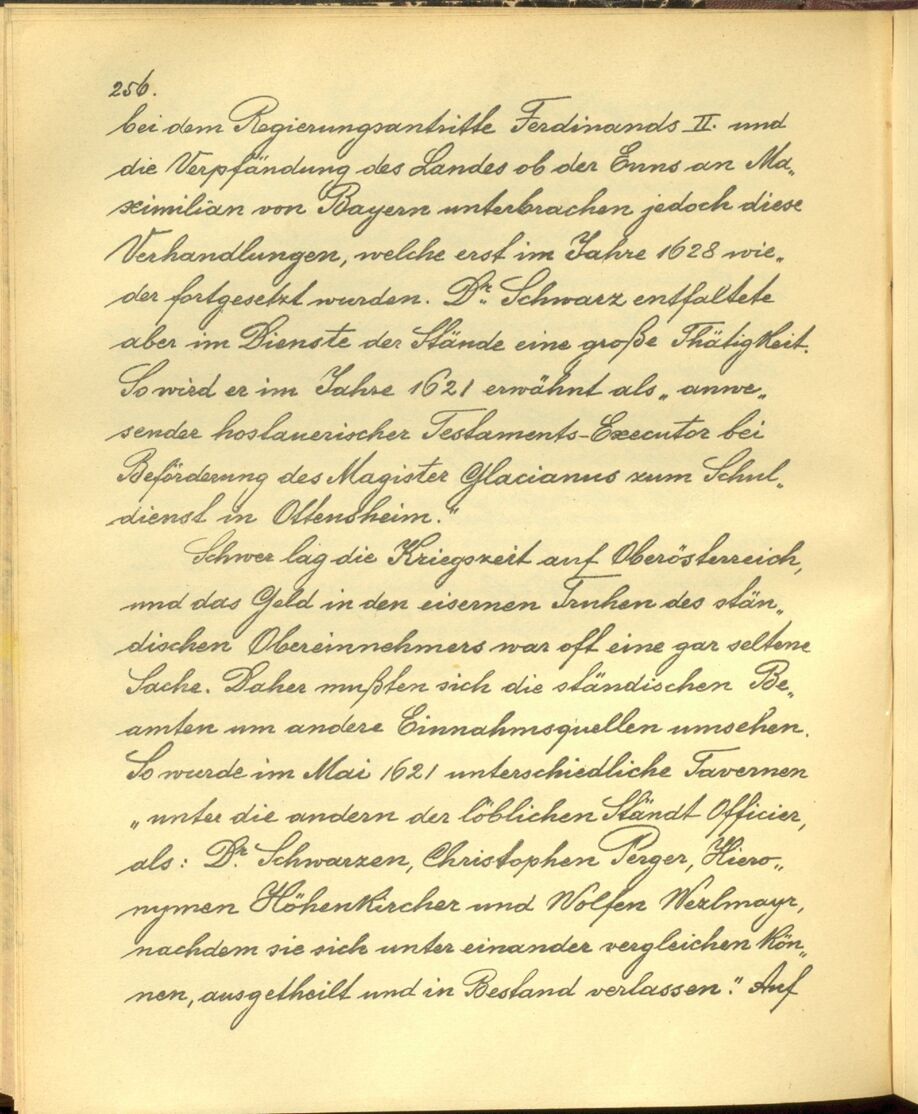 256.
bei dem Regierungsantritte Ferdinands II. und
die Verpfändung des Landes ob der Enns an Ma„
ximilian von Bayern unterbrachen jedoch diese
Verhandlungen, welche erst im Jahre 1628 wie„
der fortgesetzt wurden. Dr. Schwarz entfaltete
aber im Dienste der Stände eine große Thätigkeit.
So wird er im Jahre 1621 erwähnt als „anwe„
sender hoslauerischer Testaments-Executor bei
Beförderung des Magister Glacianus zum Schul„
dienst in Ottensheim.“
Schwer lag die Kriegszeit auf Oberösterreich,
und das Geld in den eisernen Truhen des stän„
dischen Obereinnehmers war oft eine gar seltene
Sache. Daher mußten sich die ständischen Be„
amten um andere Einnahmsquellen umsehen.
So wurde im Mai 1621 unterschiedliche Tavernen
„unter die andern der löblichen Ständt Officier,
als: Dr. Schwarzen, Christophen Perger, Hiero„
nymen Höhenkircher und Wolfen Wezlmayr,
nachdem sie sich unter einander vergleichen kön„
nen, ausgetheilt und in Bestand verlassen.“ Auf